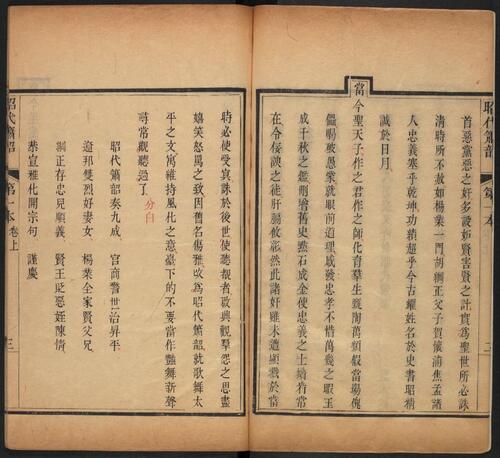 昭代簫韶
第一本
三
首惡黨惡之奸多設妬賢害賢之計實爲聖世所必誅
清時所不赦如楊業一門胡綱正父子賀懷浦焦孟諸
人忠義塞乎乾坤功績超乎今古耀姓名於史書昭精
誠於日月
當今聖天子作之君作之師化育羣生甄陶萬類假當場傀
儡暢破愚蒙就眼前道理感發忠孝不惜萬幾之暇王
成千秋之鑑刑增舊史㸃石成金使忠義之士
在今佞諛之徒肝腸攸彰然此諸奸雖未遭顯戮於當
時必使受眞誅於後世使聽觀者啟興觀羣怨之思盡
嬉笑怒罵之致因舊名傷雅改爲昭代簫韶就歌舞太
平之文寓維持風化之意臺下的不要當作艷舞新聲
尋常觀聽過了分白
昭代簫韶奏九成 宮商警世治昇平
遼邦雙烈好妻女 楊業全家賢父兄
綱正存忠兒順義 賢王貶惡姪陳情
恭宣雅化開宗句 謹慶
昭代簫韶
第一本卷上
三